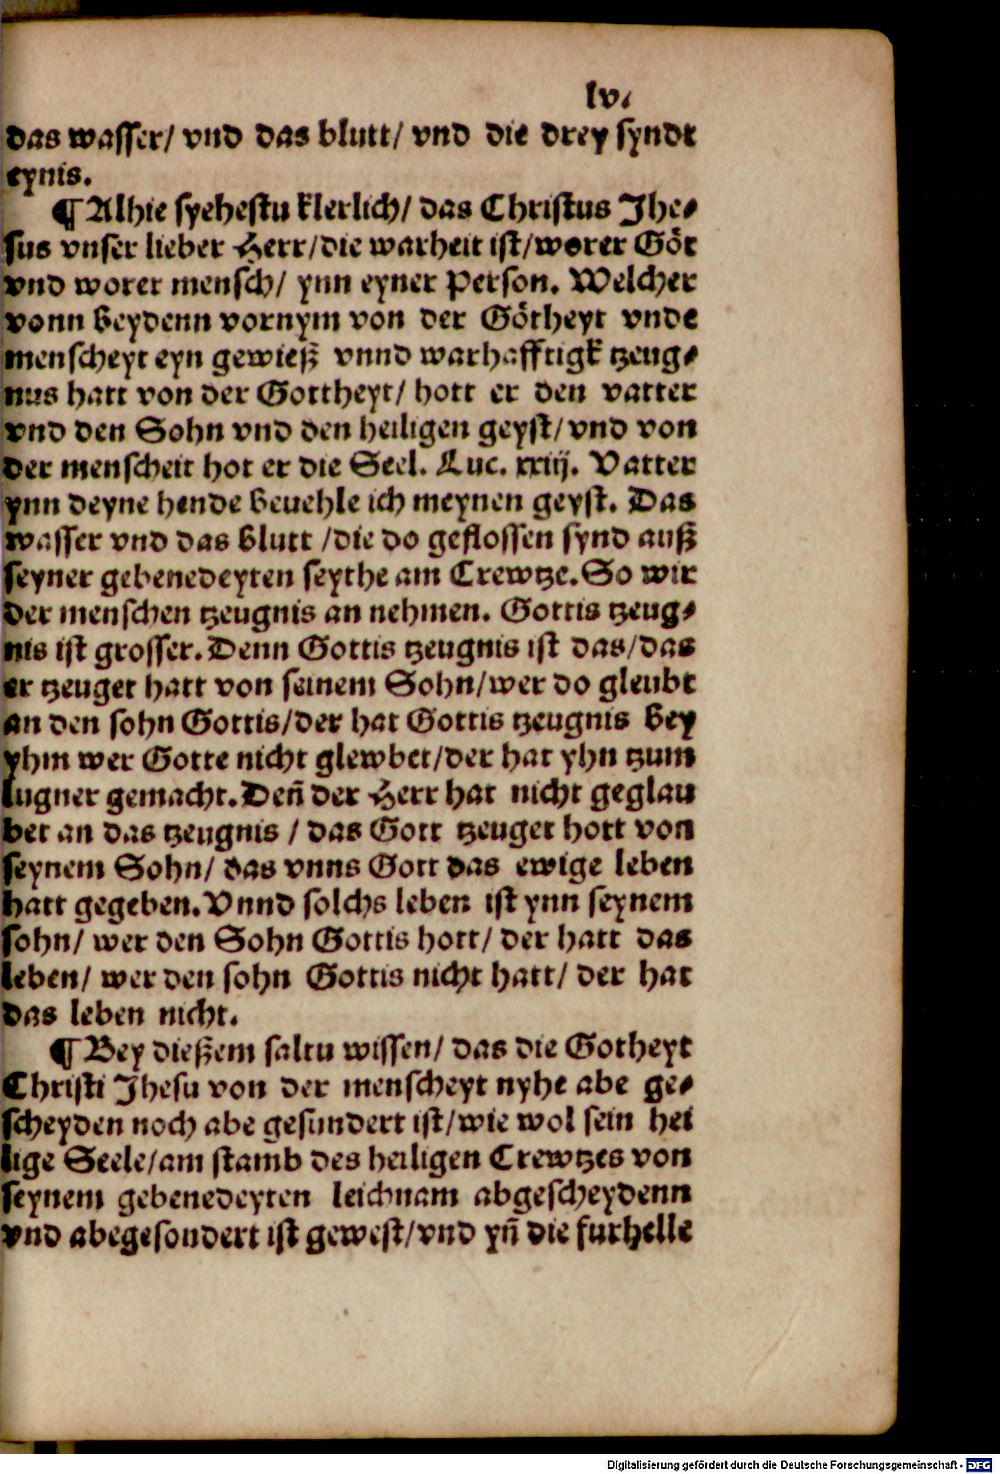 lv.
das wasser/ vnd das blutt/ vnd die drey syndt
eynis.
¶Alhie syehestu klerlich/ das Christus Jhe⸗
sus vnser lieber Herr/die warheit ist/worer Got
vnd worer mensch/ ynn eyner Person. Welcher
vonn beydenn vornym von der Gotheyt vnde
menscheyt eyn gewieß vnnd warhafftigk tzeug⸗
nus hatt von der Gottheyt/ hott er den vatter
vnd den Sohn vnd den heiligen geyst/vnd von
der menscheit hot er die Seel. Luc. xxiij. Vatter
ynn deyne hende beuehle ich meynen geyst. Das
wasser vnd das blutt /die do geflossen synd auß
seyner gebenedeyten seythe am Crewtze.So wir
der menschen tzeugnis an nehmen. Gottis tzeug⸗
nis ist grosser.Denn Gottis tzeugnis ist das/das
er tzeuget hatt von seinem Sohn/wer do gleubt
an den sohn Gottis/der hat Gottis tzeugnis bey
yhm wer Gotte nicht glewbet/der hat yhn tzum
lugner gemacht.Deñ der Herr hat nicht geglau
bet an das tzeugnis / das Gott tzeuget hott von
seynem Sohn/ das vnns Gott das ewige leben
hatt gegeben.Vnnd solchs leben ist ynn seynem
sohn/ wer den Sohn Gottis hott/ der hatt das
leben/ wer den sohn Gottis nicht hatt/ der hat
das leben nicht.
¶Bey dießem saltu wissen/ das die Gotheyt
Christi Jhesu von der menscheyt nyhe abe ge⸗
scheyden noch abe gesundert ist/wie wol sein hei
lige Seele/am stamb des heiligen Crewtzes von
seynem gebenedeyten leichnam abgescheydenn
vnd abegesondert ist gewest/vnd yñ die furhelle
Digitalisierung gefördert durch die Deutsche Forschungsgemeinschaft - DFG